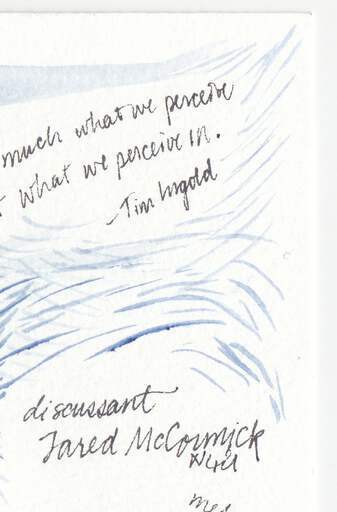 much what we perceive
what we perceive in.
Tim Ingold
discussant
Jared McCormick
NYU